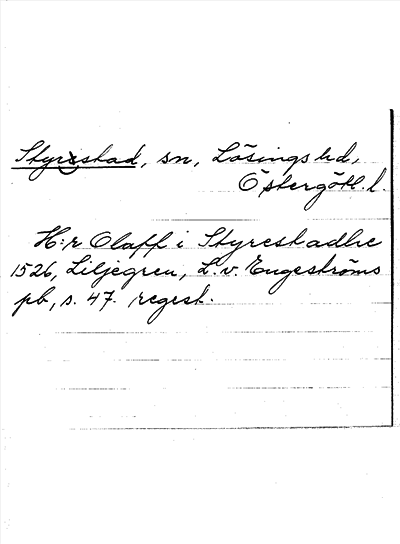 Styrestad, sn, Lösings hd,
Östergötl. l.
H:r Olaff i Styrestadhe
1526, Liljegren, L. v. Engeströms
pb, s. 47. regest.